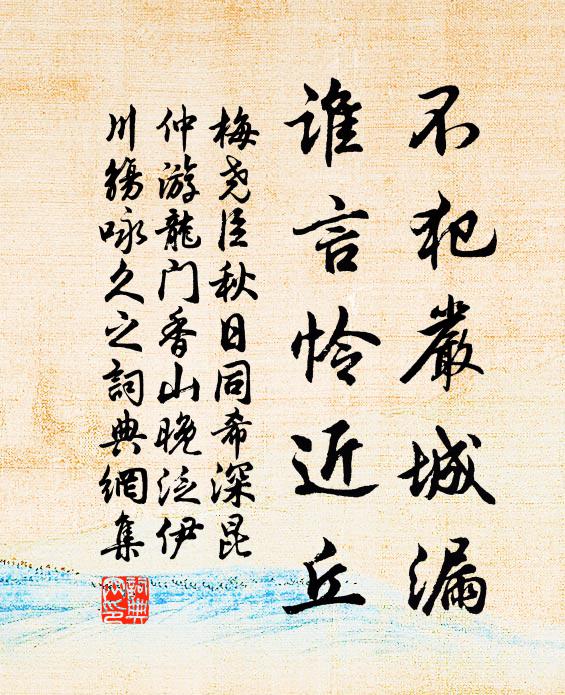 不犯嚴城漏
誰言怜近丘
梅尧臣秋日同希深昆
仲游龍门香山晚泛伊
川觴咏久之詞典網集